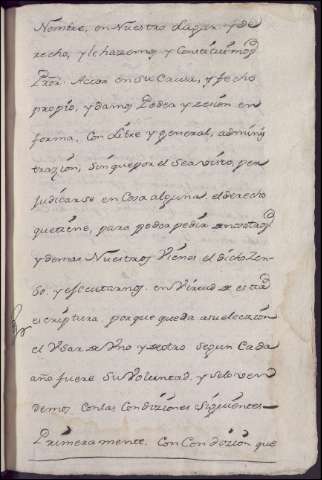 Nombre, en Nuestro Lugar y de
recho, y le hazemos y Constituimos
Pror. Actor en su Causa, y fecho
propio, y damos Poder y zesion en
forma, Con Libre y general, adminis
trazion, sin que por el sea visto, per
Judicarse en Cosa alguna el derecho
que tiene, para poder pedir a nosotros
y demas Nuestros Vienes el dicho Zen
so. y executarnos. en Virtud de esta
escriptura, porque queda a su eleczion
el Usar de Uno y de otro segun Cada
año fuere Su Voluntad. y se lo ven
demos. Con las Condiziones siguientes
Primeramente. Con Condizion que